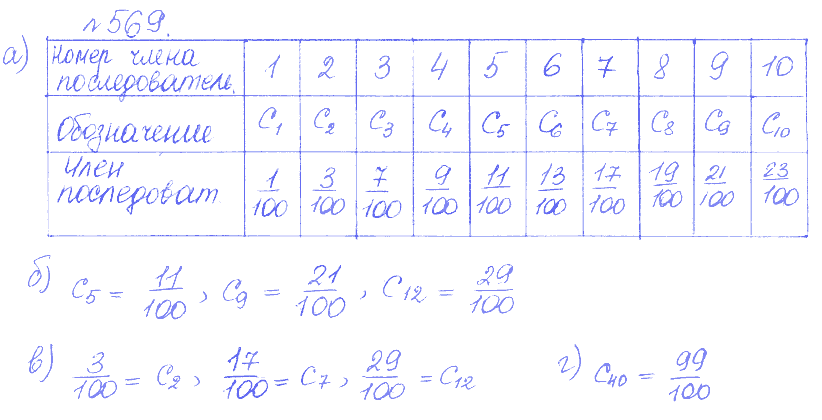 №569.
а) Номер члена последователь. 1 2 3 4 5 6 7 8 9 10
Обозначение C₁ C₂ C₃ C₄ C₅ C₆ C₇ C₈ C₉ C₁₀
Член последоват 1/100 3/100 7/100 9/100 11/100 13/100 17/100 19/100 21/100 23/100
б) C₅ = 11/100, C₉ = 21/100, C₁₂ = 29/100
в) 3/100 = C₂, 17/100 = C₇, 29/100 = C₁₂ г) C₄₀ = 99/100